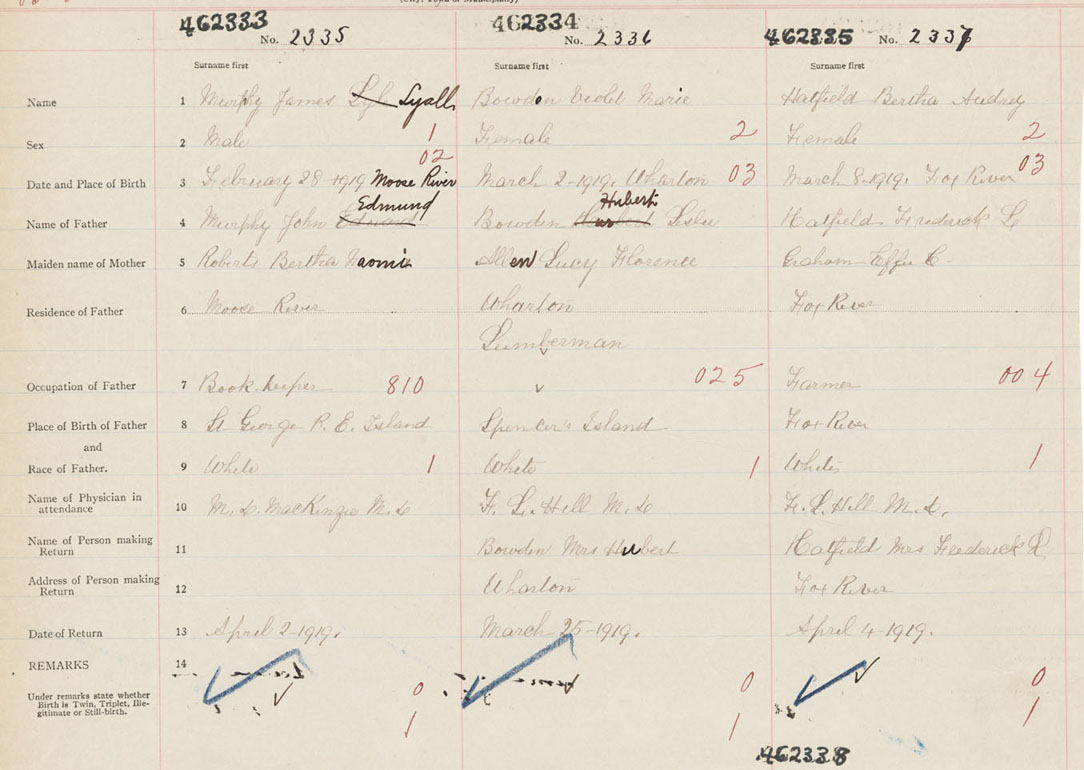 (City, Town or Municipality)
462333 462334 462335
No. 2335 No. 2336 No. 2337
Surname first Surname first Surname first
Name 1 Murphy James Lyl Lyall Bowden Violet Marie Hatfield Bertha Audrey
Sex 2 Male 1 Female 2 Female 2
02 03 03
Date and Place of Birth 3 February 28-1919 Moose River March 2-1919. Wharton March 8-1919. Fox River
Edmund Hubert
Name of Father 4 Murphy John Edward Bowden Leslie Hatfield Frederick L
Maiden name of Mother 5 Roberts Bertha Naomie Allen Lucy Florence Graham Effie C.
Residence of Father 6 Moose River Wharton Fox River
Lumberman
Occupation of Father 7 Book keeper 810 025 Farmer 004
Place of Birth of Father 8 St George P. E. Island Spencer's Island Fox River
and
Race of Father. 9 White 1 White 1 White 1
Name of Physician in attendance 10 M. D. MacKenzie M. D F. L. Hill M. D F. L. Hill M. D.
Name of Person making Return 11 Bowden Mrs Hubert Hatfield Mrs Frederick L
Address of Person making Return 12 Wharton Fox River
Date of Return 13 April 2-1919. March 25-1919. April 4-1919.
REMARKS 14
Under remarks state whether Birth is Twin, Triplet, Ille-
gitimate or Still-birth.
0 0 0
1 1 1
462338